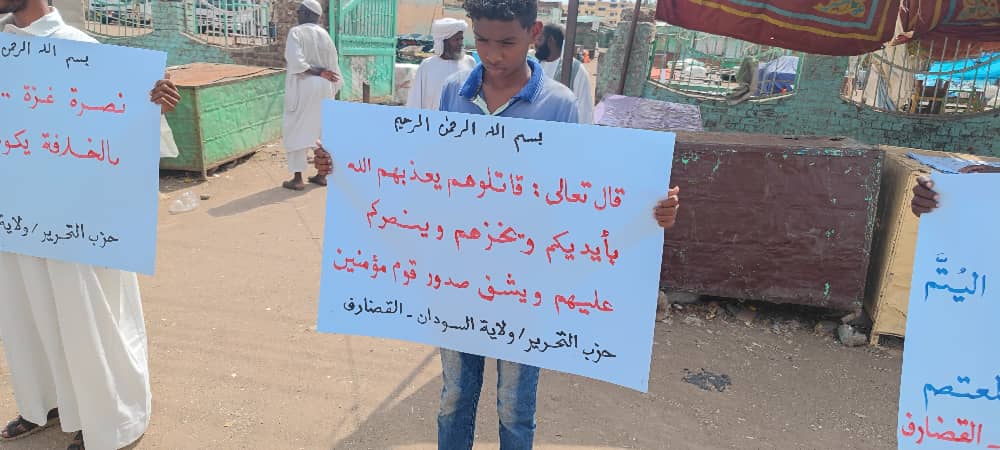 بسم الله الرحمن
نصرة غزة ..
بالخلافة يكو
حزب التحرير/ولاية
بسم الله الرحمن الرحيم
قال تعالى: قاتلوهم يعذبهم الله
بأيديكم ويخزهم وينصركم
عليهم ويشف صدور قوم مؤمنين
حزب التحرير/ولاية السودان - القضارف
اليُتَّم
لمعتصم
- القضارف